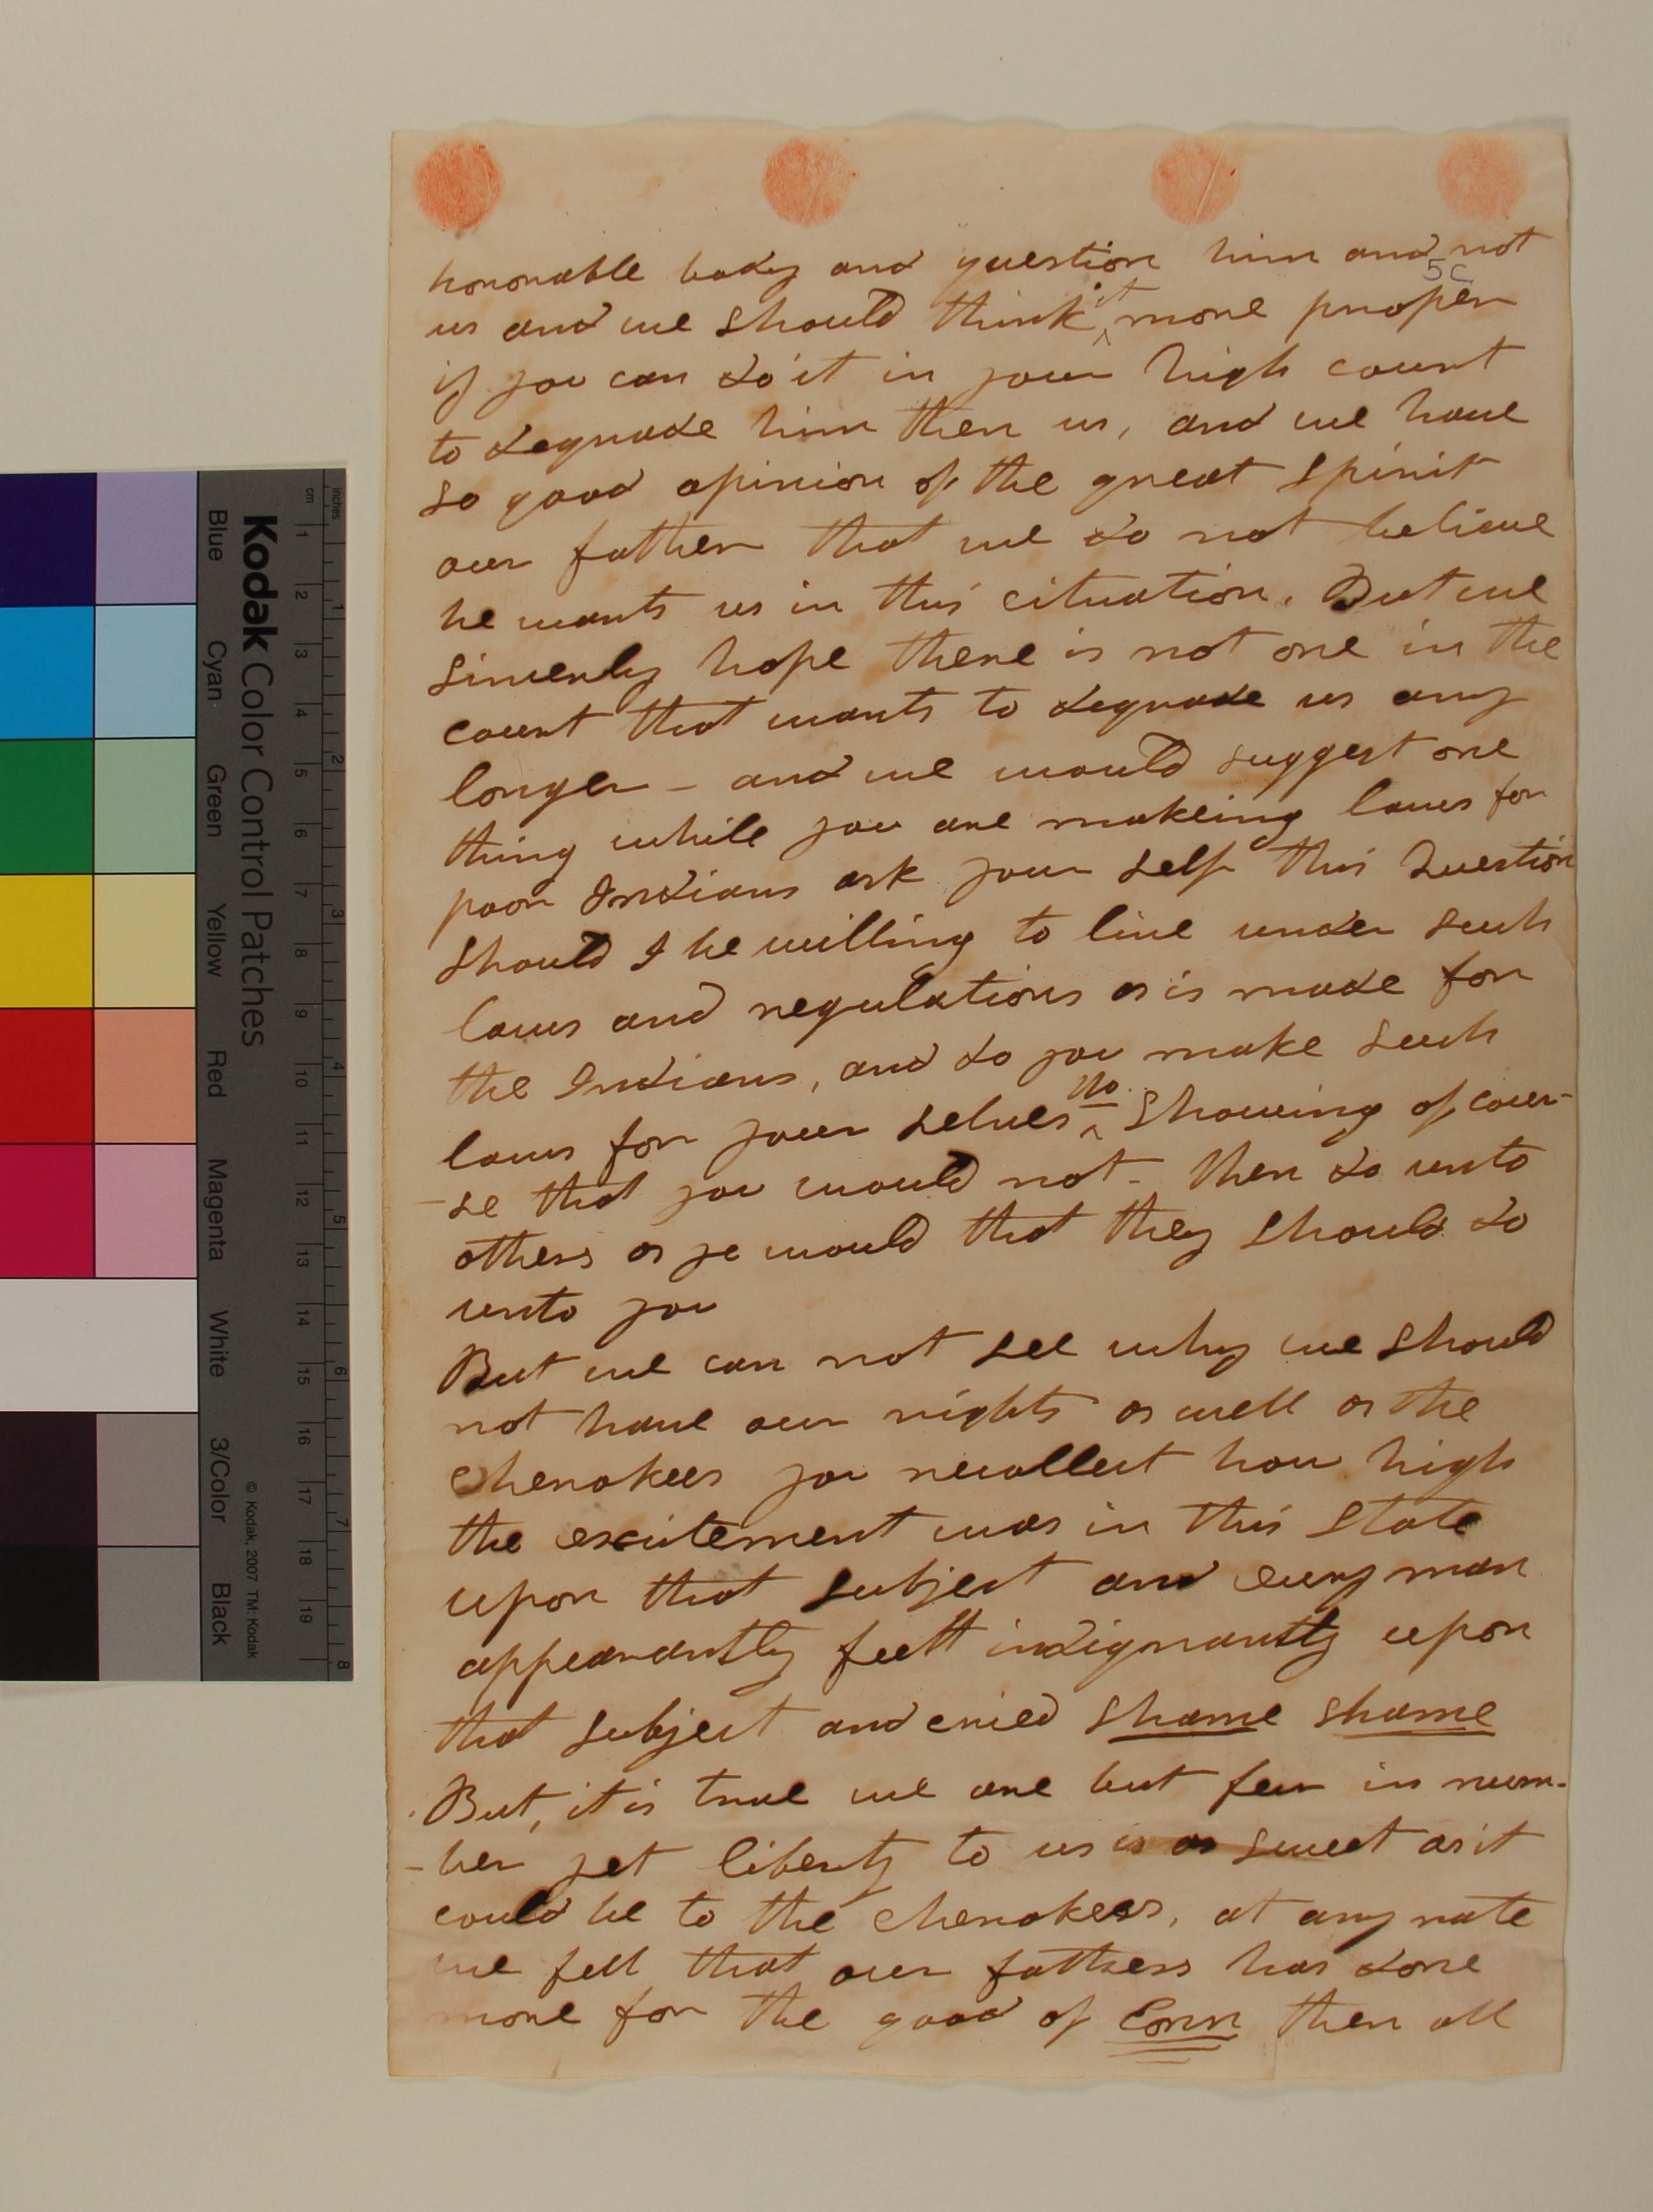 honorable body and question him and not
5c
us and we should think ^it more proper
if you can do it in your high court
to degrade him then us, and we have
so good opinion of the great Spirit
our father that we do not believe
he wants us in this cituation. But we
Sincerly hope there is not one in the
court that wants to degrade us any
longer - and we would suggest one
thing while you are makeing laws for
poor Indians ask your self this Question
should I be willing to live under such
laws and regulations as is made for
the Indians, and do you make such
laws for your selves ^no showing of cour-
-se that you would not - then do unto
others as ye would that they should do
unto you
But we can not see why we should
not have our rights as well as the
Cherokees you recollect how high
the excitement was in this State
upon that subject and every man
appearantly feelt indignantly upon
that subject and cried shame shame
But, it is true we are but few in num-
-ber yet liberty to us is as sweet as it
could be to the cherokees, at any rate
we fell that our fathers has done
more for the good of Conn then all
Kodak Color Control Patches
© Kodak, 2007 TM: Kodak
inches 1 2 3 4 5 6 7 8
cm 1 2 3 4 5 6 7 8 9 10 11 12 13 14 15 16 17 18 19
Blue Cyan Green Yellow Red Magenta White 3/Color Black